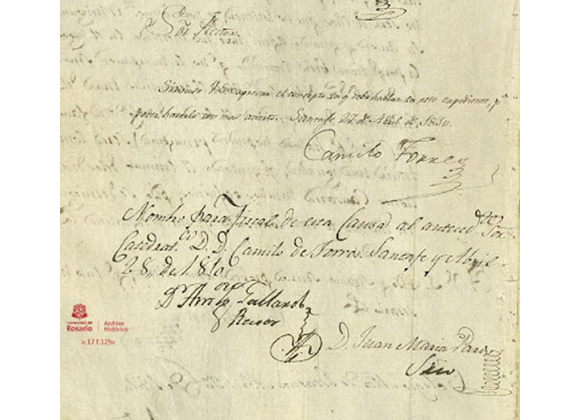 Sor. Rector
Sirvase V. S. agregarme el concepto en q. debo hablar en este expediente, pa.
poder hacerlo con mas acierto. Santafe 27 de Abril de 1810.
Camilo Torres
Nombro para Fiscal de esta Causa al antecedte. Sor.
Catedratco. D. D. Camilo de Torres. Santafe y Abril
28,, de 1810,,
Dr. Anto. Gallardo
Rector
D. Juan Maria Pardo
Srio
Universidad del
Rosario
Archivo
Histórico
v.17 f.129v